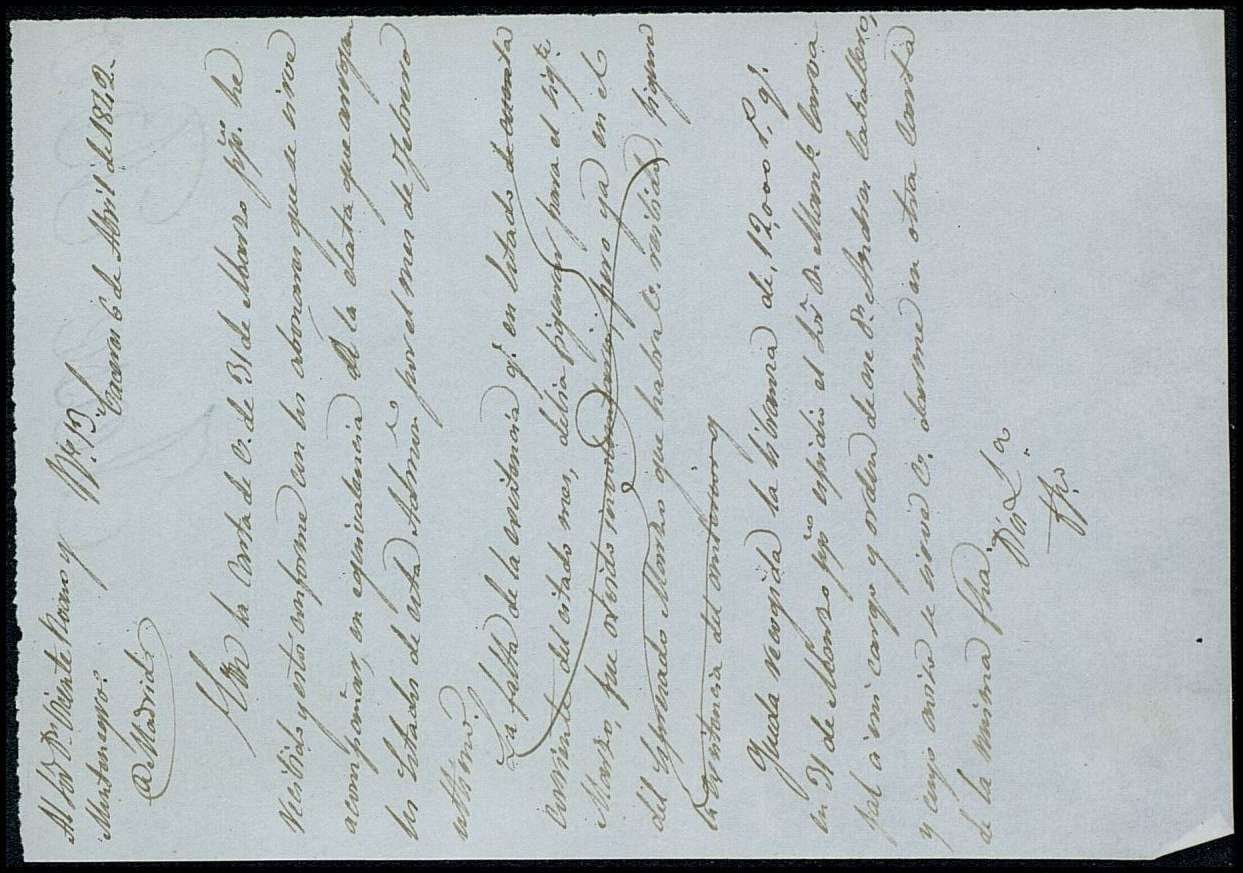 Al Sor Dn Vicente Bano y
Montenegro.
Madrid.
Nº 13.
Cuevas 6 de Abril de 1840
Con la Carta de V. de 31 de Marzo ppo. he
recibido y estoy conforme con los abonarés que se sirve
acompañar, en equivalencia de la data que arrojan
los Estados de esta Admon. por el mes de Febrero
ultimo.
La falta de la existencia qe. en Estado de cuenta
corriente del citado mes, debia figurar para el sigte.
Marzo, fue olvido involuntario; pero ya en el
del espresado Marzo que habrá V. recibido, figura
la existencia del anterior.
Queda recogida la libranza de 12,000 rs. qe.
en 31 de Marzo ppo espidió el Sor Dn
pral a mi cargo y orden de ese Dn Andres Caballero,
y cuyo aviso se sirve V. darme en otra Carta
de la misma fha.